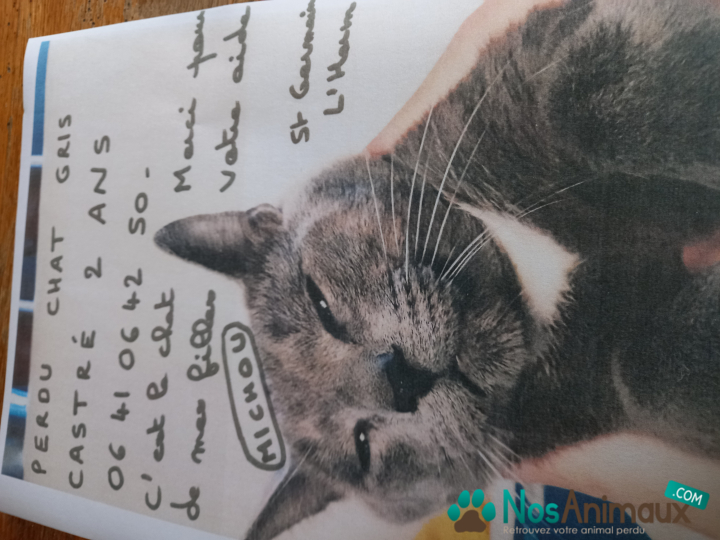 PERDU CHAT GRIS
CASTRÉ 2 ANS
06 41 06 42 50-
C'est le chat
de mes filles
MICHOU
Merci pour
votre aide
St Germain
L'Herm
NosAnimaux.COM
Retrouvez votre animal perdu